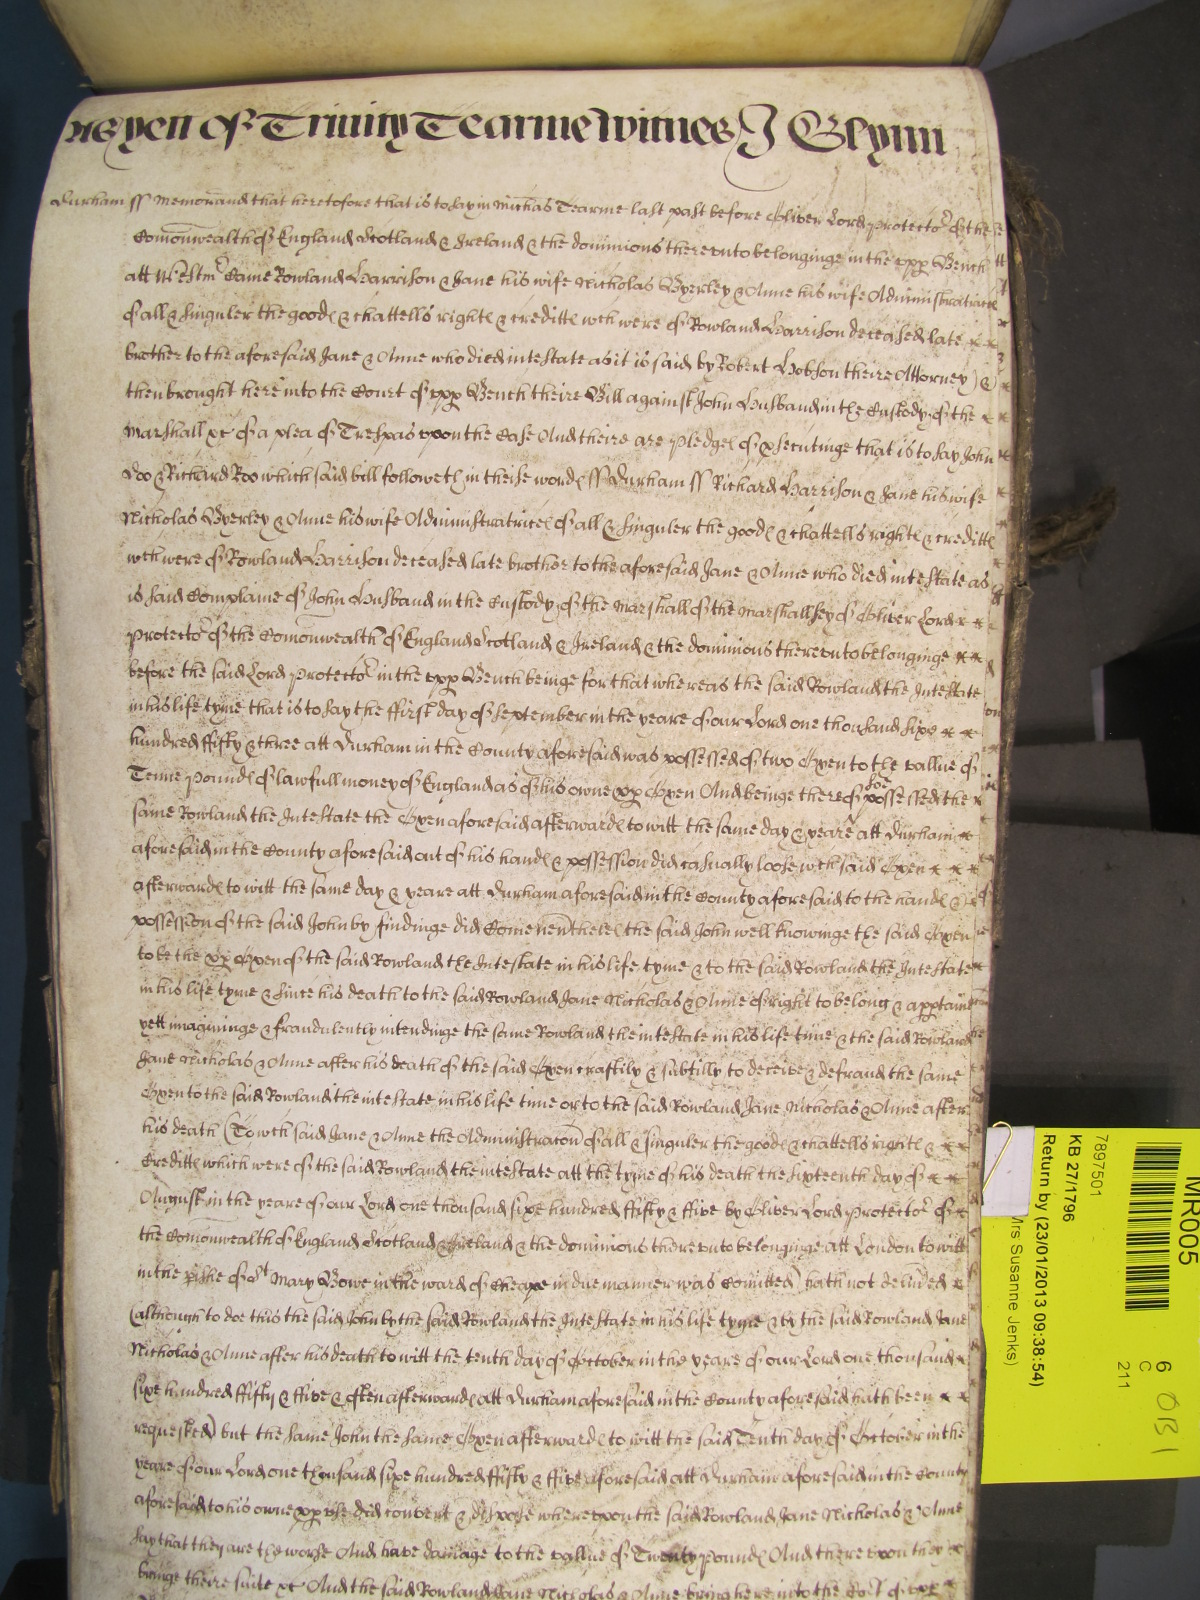 yet yett of Trinity Tearme Witnes J Glynn
Durham ss Memorand that heretofore that is to say in Michas Tearme last past before Oliver Lord Protector of the
Comonwealth of England Scotland & Ireland & the dominions thereunto belonginge in the upp Bench
att Westmr Came Rowland Harrison & Jane his wife Nicholas Byerley & Anne his wife Administratrices
of all & singuler the goods & chattells rights & creditts wch were of Rowland Harrison deceased late
brother to the aforesaid Jane & Anne who died intestate as it is said by Robert Hobson theire Attorney) &
then brought here into the Court of upp Bench theire Bill against John Husband in the Custody of the
Marshall &c of a plea of Trespas upon the Case And theire are pledges of psecutinge that is to say John
Doo & Richard Roo which said bill followeth in theise words ss Durham ss Richard Harrison & Jane his wife
Nicholas Byerley & Anne his wife Administratrices of all & singuler the goods & chattells rights & creditts
wch were of Rowland Harrison deceased late brother to the aforesaid Jane & Anne who died intestate as
is said Complaine of John Husband in the Custody of the Marshall of the Marshallsey of Oliver Lord
Protector of the Comonwealth of England Scotland & Ireland & the dominions thereunto belonginge
before the said Lord Protector in the upp Bench beinge for that whereas the said Rowland the Intestate
in his life tyme that is to say the ffirst day of September in the yeare of our Lord one thousand sixe
hundred ffifty & three att Durham in the County aforesaid was possessed of two Oxen to the vallue of
Tenne Pounds of lawfull money of England as of his owne pp Oxen And beinge thereof soe possessed the
same Rowland the Intestate the Oxen aforesaid afterwards to witt the same day & yeare att Durham
aforesaid in the County aforesaid out of his hands & possession did casually loose wch said Oxen
afterwards to witt the same day & yeare att Durham aforesaid in the County aforesaid to the hands &
possession of the said John by findinge did Come nevertheles the said John well knowinge the said Oxen
to be the pp Oxen of the said Rowland the Intestate in his life tyme & to the said Rowland the Intestate
in his life tyme & since his death to the said Rowland Jane Nicholas & Anne of right to belong & apptaine
yett imagininge & fraudulently intendinge the same Rowland the intestate in his life time & the said Rowland
Jane Nicholas & Anne after his death of the said Oxen craftily & subtilly to deceive & defraud the same
Oxen to the said Rowland the intestate in his life time or to the said Rowland Jane Nicholas & Anne after
his death (To wch said Jane & Anne the Administracon of all & singuler the goods & chattells rights &
Creditts which were of the said Rowland the intestate att the tyme of his death the sixteenth day of
August in the yeare of our Lord one thousand sixe hundred ffifty & ffive by Oliver Lord Protector of
the Comonwealth of England Scotland & Ireland & the dominions thereunto belonginge att London to witt
in the pishe of St Mary Bowe in the ward of Cheape in due manner was Comitted) hath not delived
(although to doe this the said John by the said Rowland the Intestate in his life tyme & by the said Rowland Jane
Nicholas & Anne after his death to witt the tenth day of October in the yeare of our Lord one thousand
sixe hundred ffifty & ffive & often afterwards att Durham aforesaid in the County aforesaid hath been
requested) but the same John the same Oxen afterwards to witt the said Tenth day of October in the
yeare of our Lord one thousand sixe hundred ffifty & ffive aforesaid att Durham aforesaid in the County
aforesaid to his owne pp use did convert & dispose whereupon the said Rowland Jane Nicholas & Anne
say that they are the worse And have damage to the vallue of Twenty Pounds And thereupon they
bringe theire suite &c And the said Rowland Jane Nicholas & Anne bring here into the Cort of upp
MR005
6
C
211
OB1
7897501
KB 27/1796
Return by (23/01/2013 09:38:54)
Mrs Susanne Jenks)